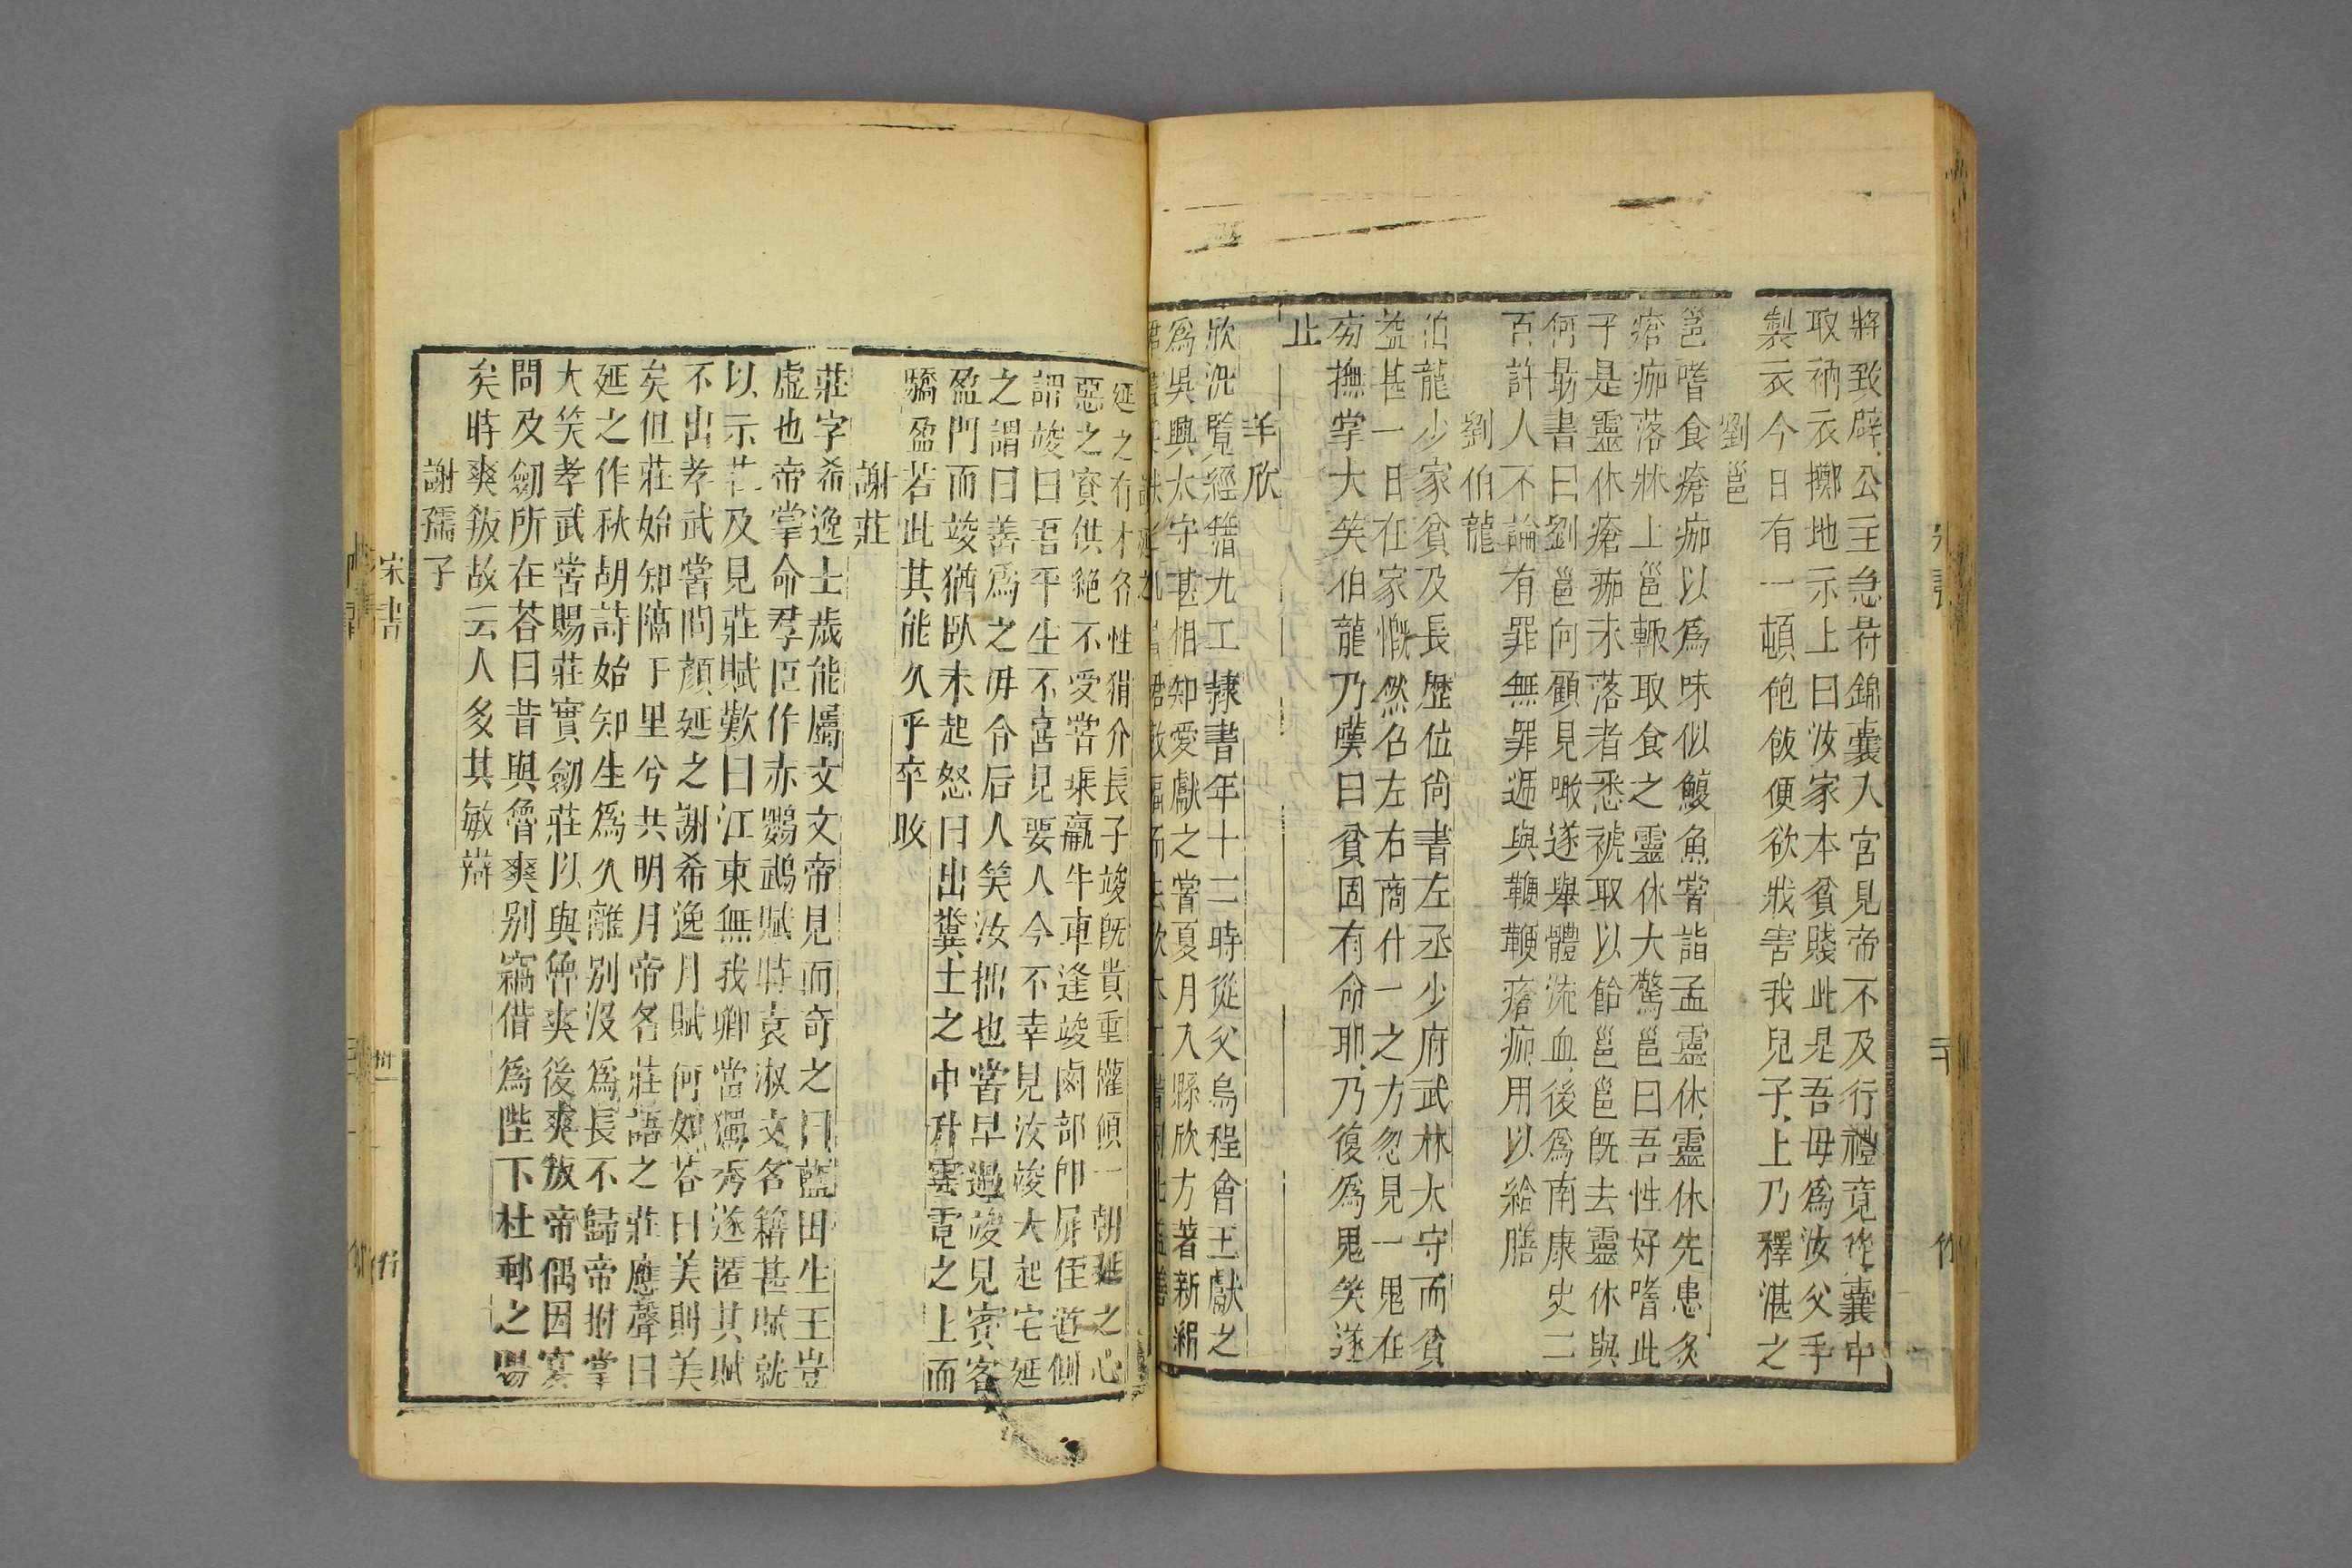 將致辟公主急莙錦囊入宮見帝不及行禮竟作囊中
取衲衣擲地示上曰汝家本貧賤此是吾母為汝父手
製衣今日有一頓飽飯便欲戕害我兒子上乃釋湛之
劉邕
邕嗜食瘡痂以為味似鰒魚嘗詣孟靈休靈休先患灸
瘡痂落牀上邕輒取食之靈休大驚邕曰吾性好嗜此
于是靈休瘡痂未落者悉褫取以飴邕邕旣去靈休與
何勗書曰劉邕向顧見噉遂舉體流血後為南康史二
百許人不論有罪無罪遞與鞭鞭瘡痂用以給膳
劉伯龍
伯龍少家貧及長歷位尚書左丞少府武林太守而貧
益甚一日在家慨然召左右商什一之方忽見一鬼在
旁撫掌大笑伯龍乃嘆曰貧固有命耶乃復為鬼笑遂
止
羊欣
欣汎覽經籍尤工隸書年十二時從父烏程會王獻之
為吳興太守甚相知愛獻之嘗夏月入縣欣方著新絹
延之有才名性狷介長子竣旣貴重權傾一朝延之心
惡之資供絶不受嘗乘羸牛車逢竣鹵部卽屏徃道側
謂竣曰吾平生不喜見要人今不幸見汝竣大起宅延
之謂曰善為之毋令后人笑汝拙也嘗早過竣見賓客
盈門而竣猶臥未起怒曰出糞土之中升雲霓之上而
驕盈若此其能久乎卒敗
謝莊
莊字希逸七歲能屬文文帝見而奇之曰藍田生玉豈
虛也帝掌命羣臣作赤鸚鵡賦時袁淑文名籍甚賦就
以示莊及見莊賦歎曰江東無我卿當獨秀遂匿其賦
不出孝武嘗問顏延之謝希逸月賦何如荅曰美則美
矣但莊始知隔千里兮共明月帝名莊語之莊應聲曰
延之作秋胡詩始知生為久離别沒為長不歸帝拊掌
大笑孝武嘗賜莊寶劒莊以與魯爽後爽叛帝偶因宴
問及劒所在荅曰昔與魯爽别竊借為陛下杜郵之賜
矣時爽叛故云人多其敏辯
謝孺子
宋書